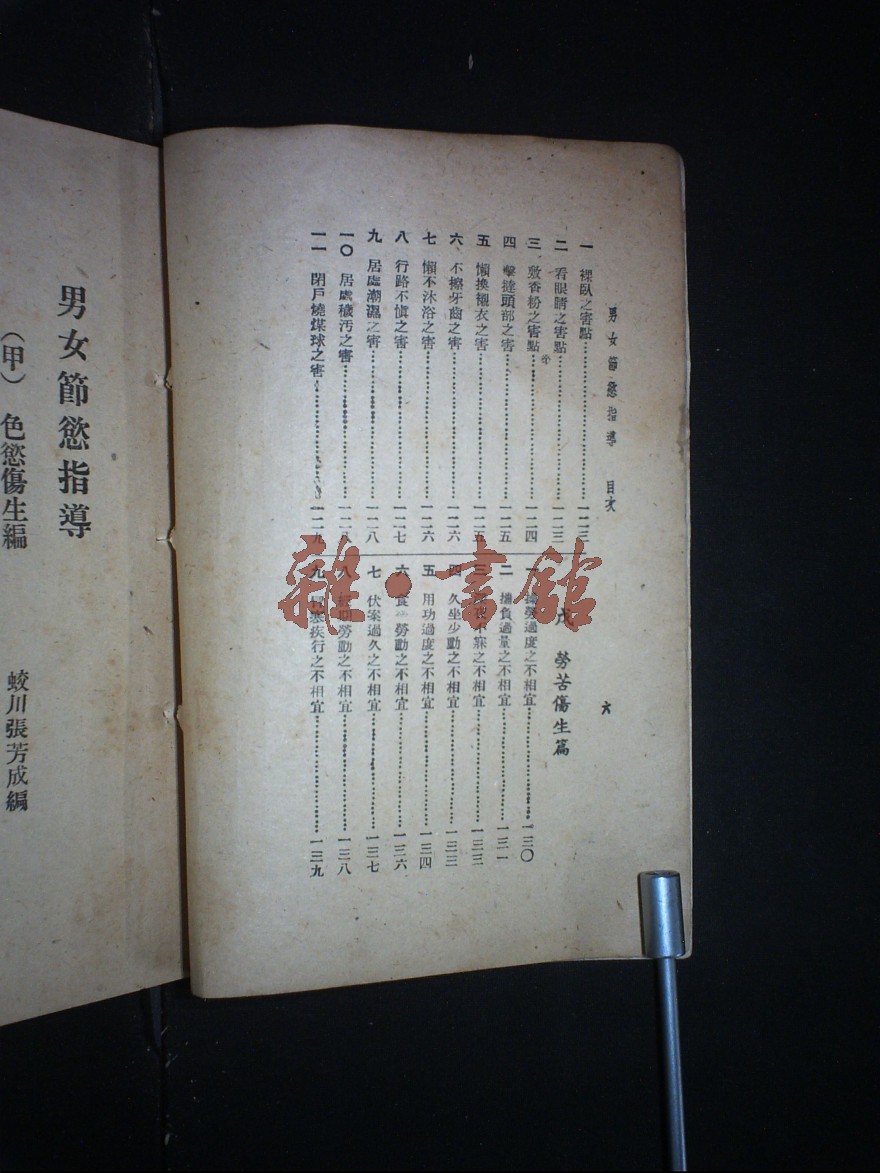 男女節慾指導　目次
六
一　裸臥之害點……一二三
二　看眼睛之害點……一二三
三　敷香粉之害點……一二四
四　擊撻頭部之害……一二五
五　懶換襯衣之害……一二五
六　不擦牙齒之害……一二六
七　懶不沐浴之害……一二六
八　行路不愼之害……一二七
九　居處潮濕之害……一二八
一〇　居處穢汚之害……一二八
一一　閉戶燒煤球之害……一二九
戊　勞苦傷生篇
一　勞過度之不相宜……一三〇
二　擔負過量之不相宜……一三一
三　不寐之不相宜……一三三
四　久坐少動之不相宜……一三三
五　用功過度之不相宜……一三四
六　食　勞動之不相宜……一三六
七　伏案過久之不相宜……一三七
八　勞動之不相宜……一三八
九　疾行之不相宜……一三九
男女節慾指導
（甲）　色慾傷生編
蛟川張芳成編
雜·書館